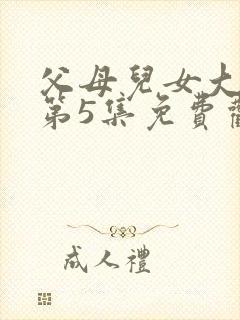 父母兒女大
第5集免費
成人禮